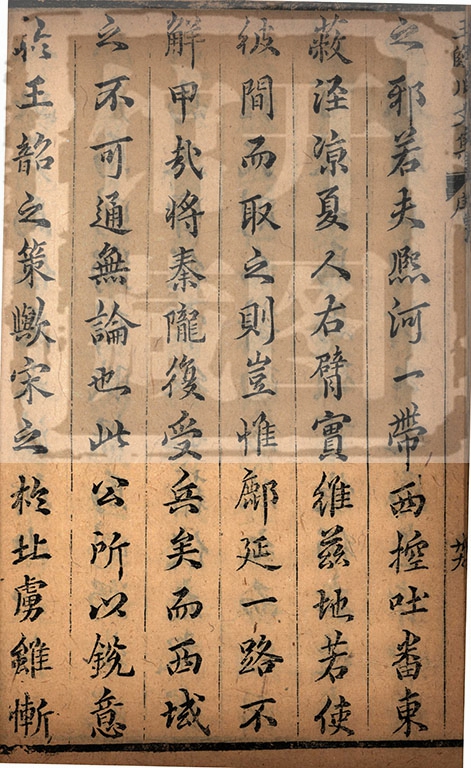 之邪若夫熈河一帶西控吐蕃東
蔽涇凉夏人右臂實維兹地若使
彼間而取之則豈惟鄜延一路不
解甲㢤將秦隴復受兵矣而西域
之不可通無論也此公所以銳意
扵王韶之策歟宋之於北虜雖慚